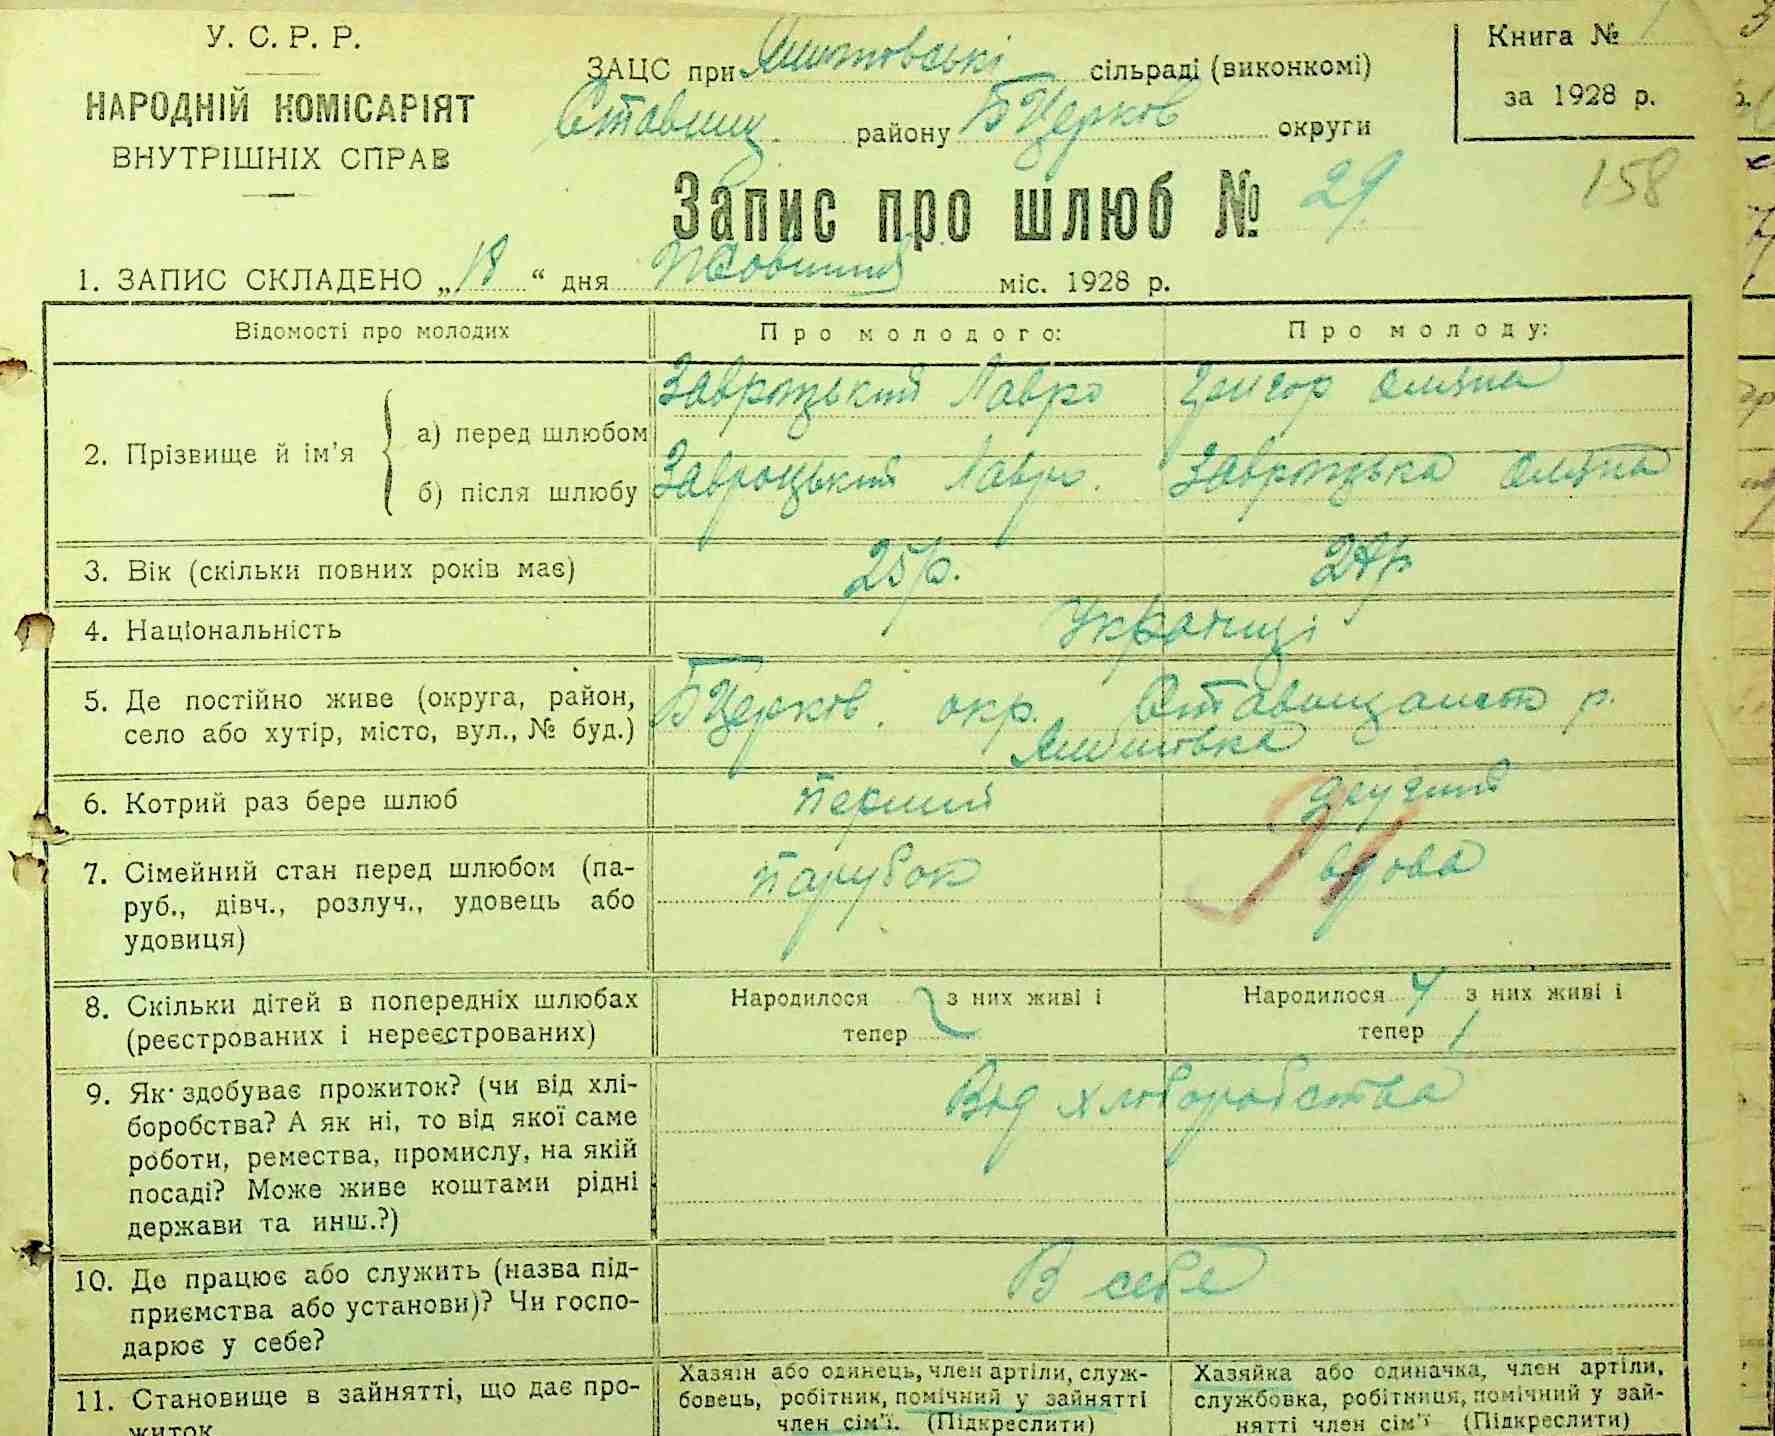 У. С. Р. Р.
НАРОДНІЙ КОМІСАРІЯТ
ВНУТРІШНІХ СПРАВ
ЗАЦС при сільраді (виконкомі)
Ставищ. району Б Церков округи
Книга №
за 1928 р.
158
Запис про шлюб № 29.
1. ЗАПИС СКЛАДЕНО „18“ дня Жовтня міс. 1928 р.
Відомості про молодих
Про молодого:
Про молоду:
2. Прізвище й ім'я
а) перед шлюбом
Завроцький Лавро
Олена
б) після шлюбу
Завроцький Лавро.
Завроцька Олена
3. Вік (скільки повних років має)
25 р.
24 р
4. Національність
Українці
5. Де постійно живе (округа, район,
село або хутір, місто, вул., № буд.)
Б Церков. окр. р.
6. Котрий раз бере шлюб
Перший
другий
7. Сімейний стан перед шлюбом (па-
руб., дівч., розлуч., удовець або
удовиця)
Парубок
вдова
8. Скільки дітей в попередніх шлюбах
(реєстрованих і нереєстрованих)
Народилося з них живі і
тепер
Народилося з них живі і
тепер 1
9. Як здобуває прожиток? (чи від хлі-
боробства? А як ні, то від якої саме
роботи, ремества, промислу, на якій
посаді? Може живе коштами рідні
держави та инш.?)
Від хліборобства
10. Де працює або служить (назва під-
приємства або установи)? Чи госпо-
дарює у себе?
В себе
11. Становище в зайнятті, що дає про-
житок
Хазяін або одинець, член артіли, служ-
бовець, робітник, помічний у зайнятті
член сім'ї. (Підкреслити)
Хазяйка або одиначка, член артіли,
службовка, робітниця, помічний у зай-
нятті член сім'ї (Підкреслити)